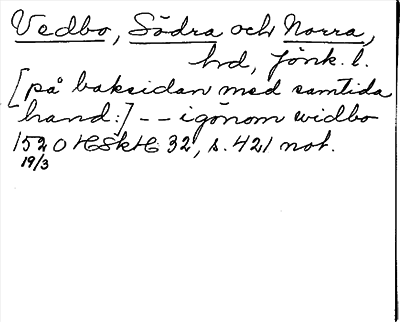 Vedbo, Södra och Norra,
hd, Jönk. l.
[på baksidan med samtida
hand:] -- igönom widbo
1520 HSkH 32, s. 421 not.
19/3